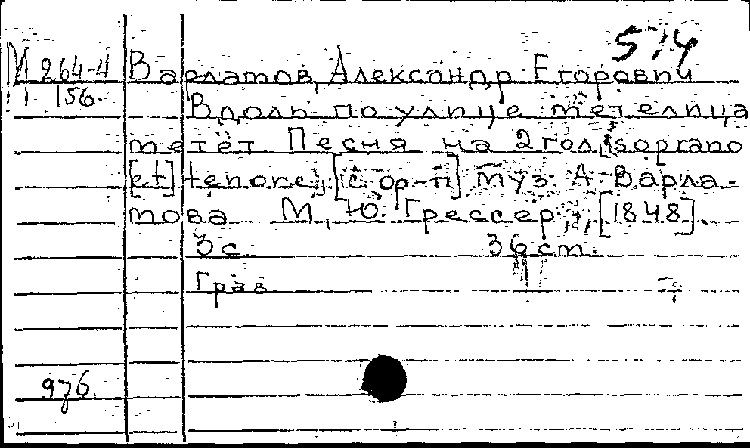 5/4
М 264-4 Варламов, Александр Егорович
156. Вдоль по улице метелица
метёт Песня на 2 гол. [soprano
[et] tenore], [с ор-п] муз. А. Варла-
мова М, Ю. Грессер, [1848].
3 с. 36 cm.
Грав
976.